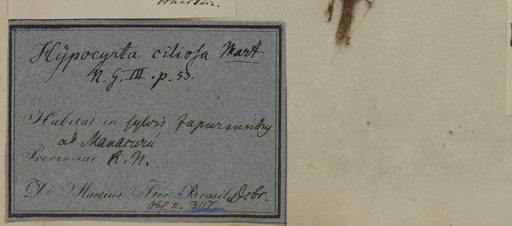 Hÿpocyrta ciliosa Mart
N. G. III. p. 53.
Habitat in sylvis Japurensibus
ad Manacurú
Provinciae R. N.
Dr Martius Iter Brasil. Debr.
Obs. n. 3117.